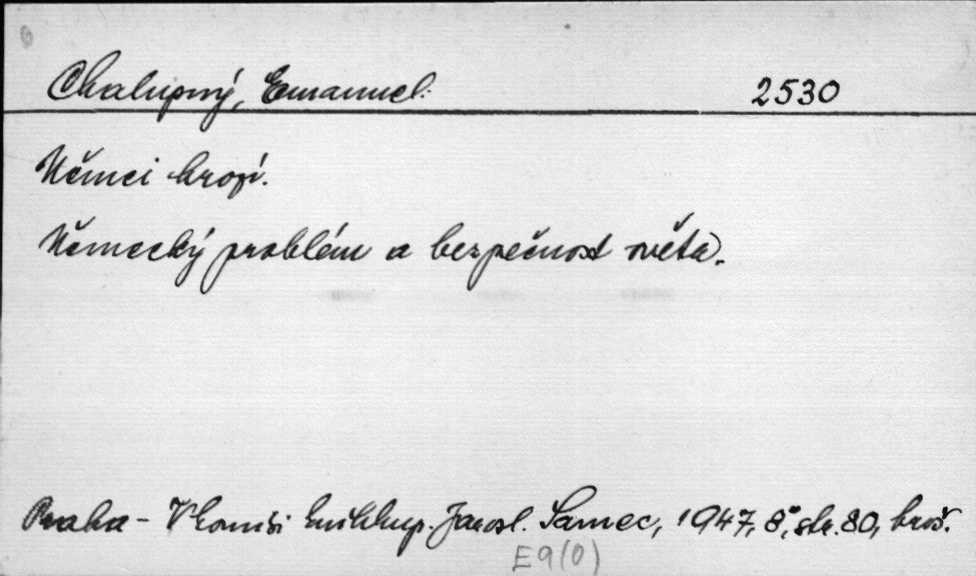 Chalupný, Emanuel: 2530
Němci hrozí.
Německý problém a bezpečnost světa.
Praha - V komisi knihkup. Jarosl. Samec, 1947, 8°, str. 80, brož.
E9(0)